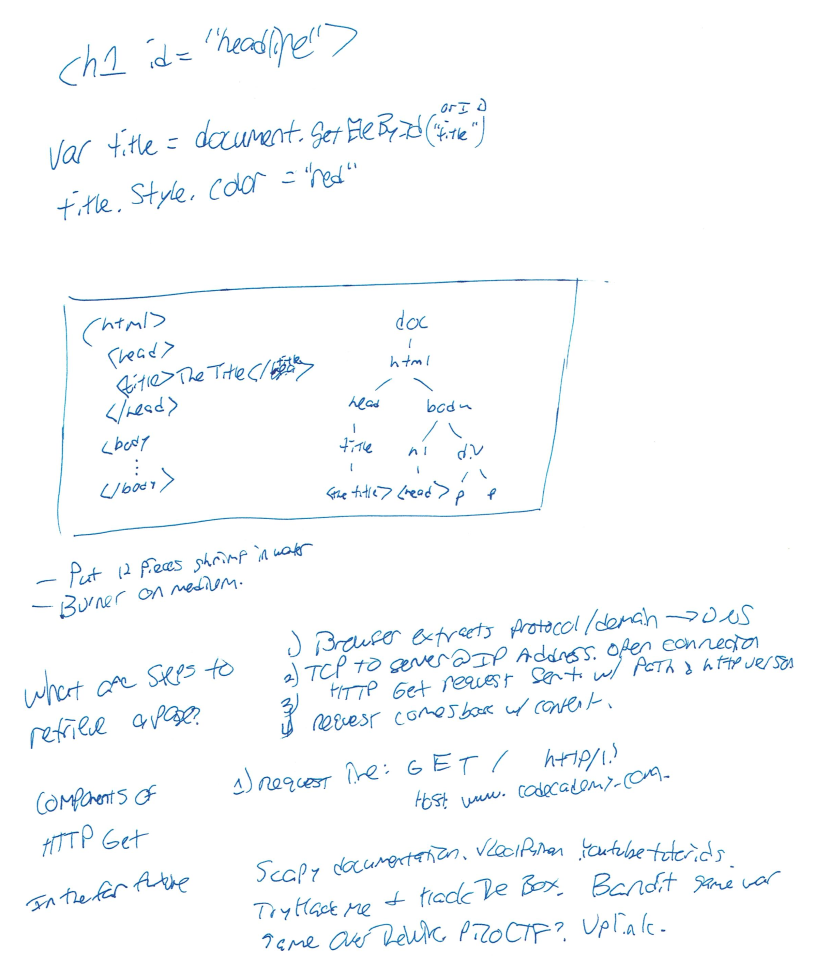 <h1 id = "headline">
or ID
var title = document.getEleById("title")
title.style.color = "red"
<html> doc
<head> html
<title>The Title</title>
</head> head body
<body title h1 div
⋮
</body> <the title> <head> p p
- Put 12 pieces shrimp in water
- Burner on medium.
What are steps to retrieve a page?
1) Browser extracts protocol/domain → DNS
2) TCP to server @ IP Address. open connection
3) HTTP Get request sent w/ Path & http version
4) request comes back w/ content.
Components of HTTP Get
1) request line: GET / http/1.1
Host: www.codecademy.com.
In the far future
Scapy documentation. Youtube tutorials.
TryHackMe + HackTheBox. Bandit game war
game OverTheWire PicoCTF?